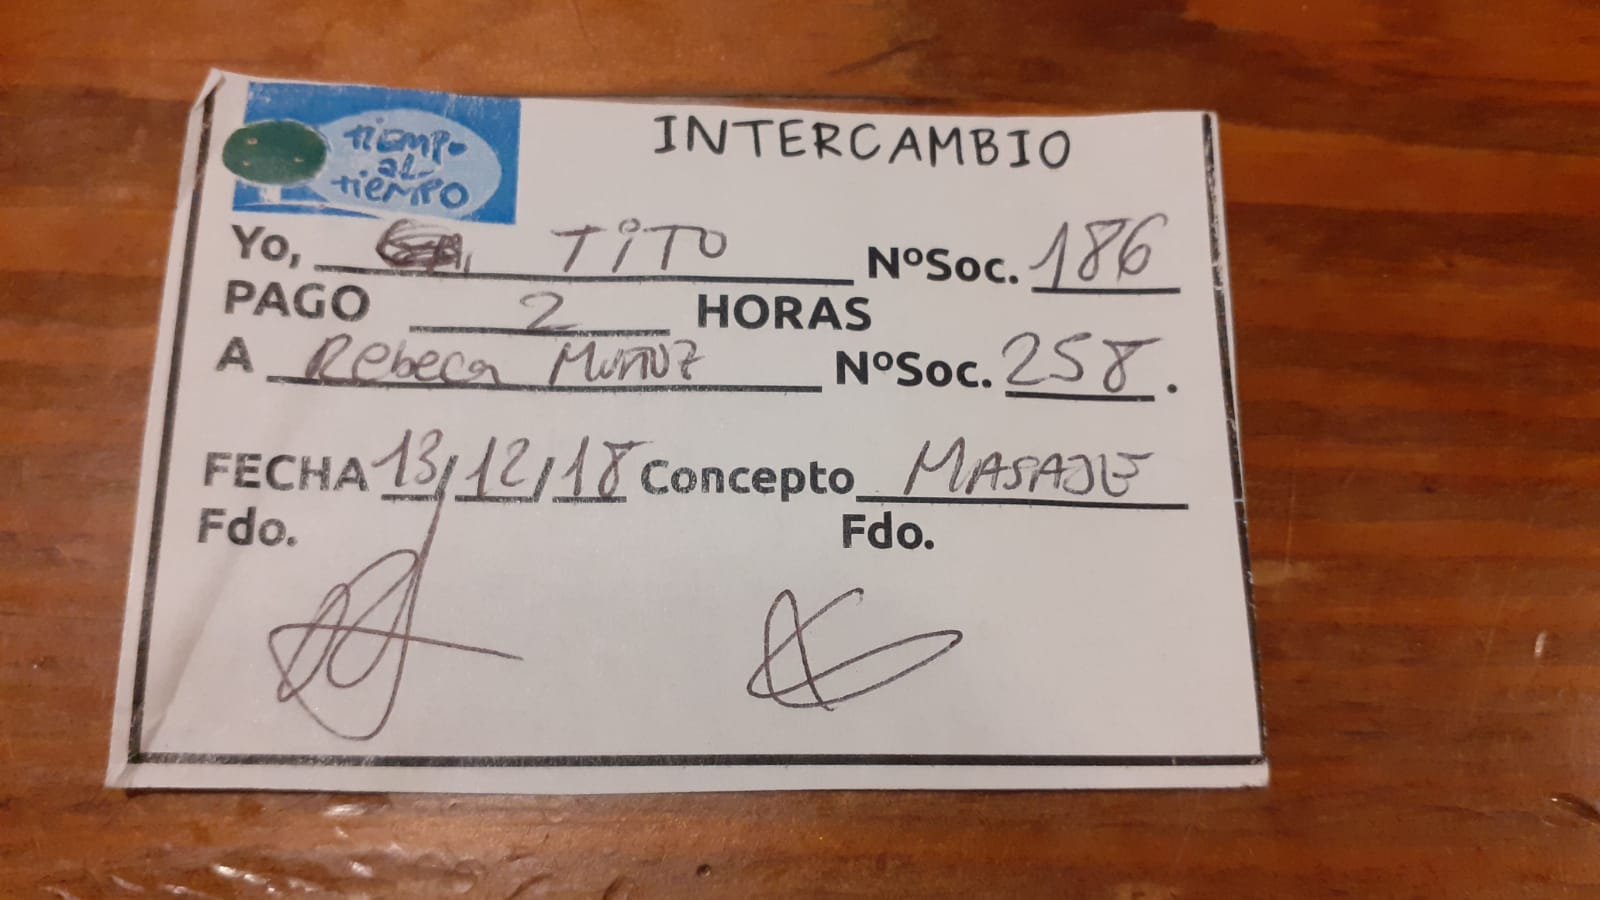 TIEMPO
AL
TIEMPO
INTERCAMBIO
Yo, TiTO NºSoc. 186
PAGO 2 HORAS
A Rebeca MUÑOZ NºSoc. 258.
FECHA 13/12/18 Concepto MASAJE
Fdo. Fdo.